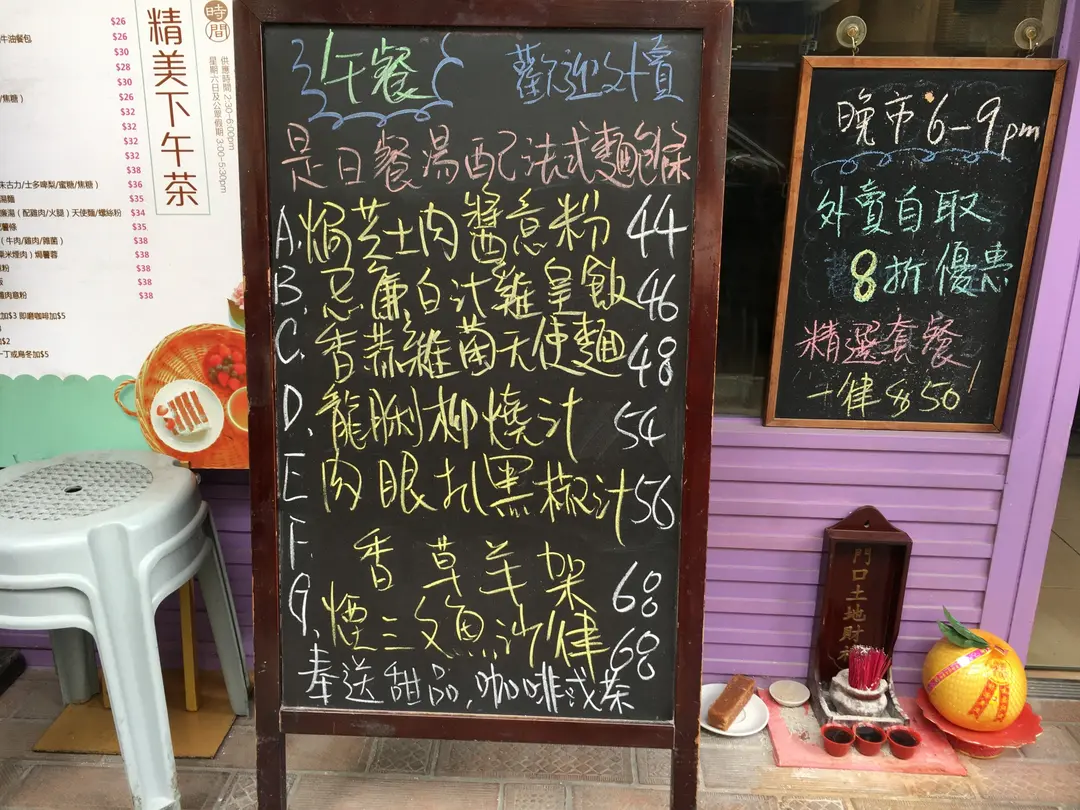 $26
牛油餐包 $26
$30
$28
$30
/焦糖） $26
$32
$32
$32
$32
$38
朱古力/士多啤梨/蜜糖/焦糖） $36
湯麵 $35
廉湯（配雞肉/火腿）天使麵/螺絲粉 $34
薯條 $35
（牛肉/雞肉/雜菌） $38
粟米煙肉）焗薯蓉 $38
粉 $38
飯 $38
雞肉意粉 $38
加$3 即磨咖啡加$5
加$2
一丁或烏冬加$5
精美下午茶
時間
供應時間 2:30-6:00pm
星期六日及公眾假期 3:00-5:30pm
午餐 歡迎外賣
是日餐湯配法式麵飽條
A. 焗芝士肉醬意粉 44
B. 忌廉白汁雞皇飯 46
C. 香蒜雜菌天使麵 48
D. 龍脷柳燒汁 54
E 肉眼扒黑椒汁 56
F. 香草羊架 68
G. 煙三文魚沙律 68
奉送甜品,咖啡或茶
晚市 6-9pm
外賣自取
8折優惠
精選套餐
一律$50!
門口土地財神